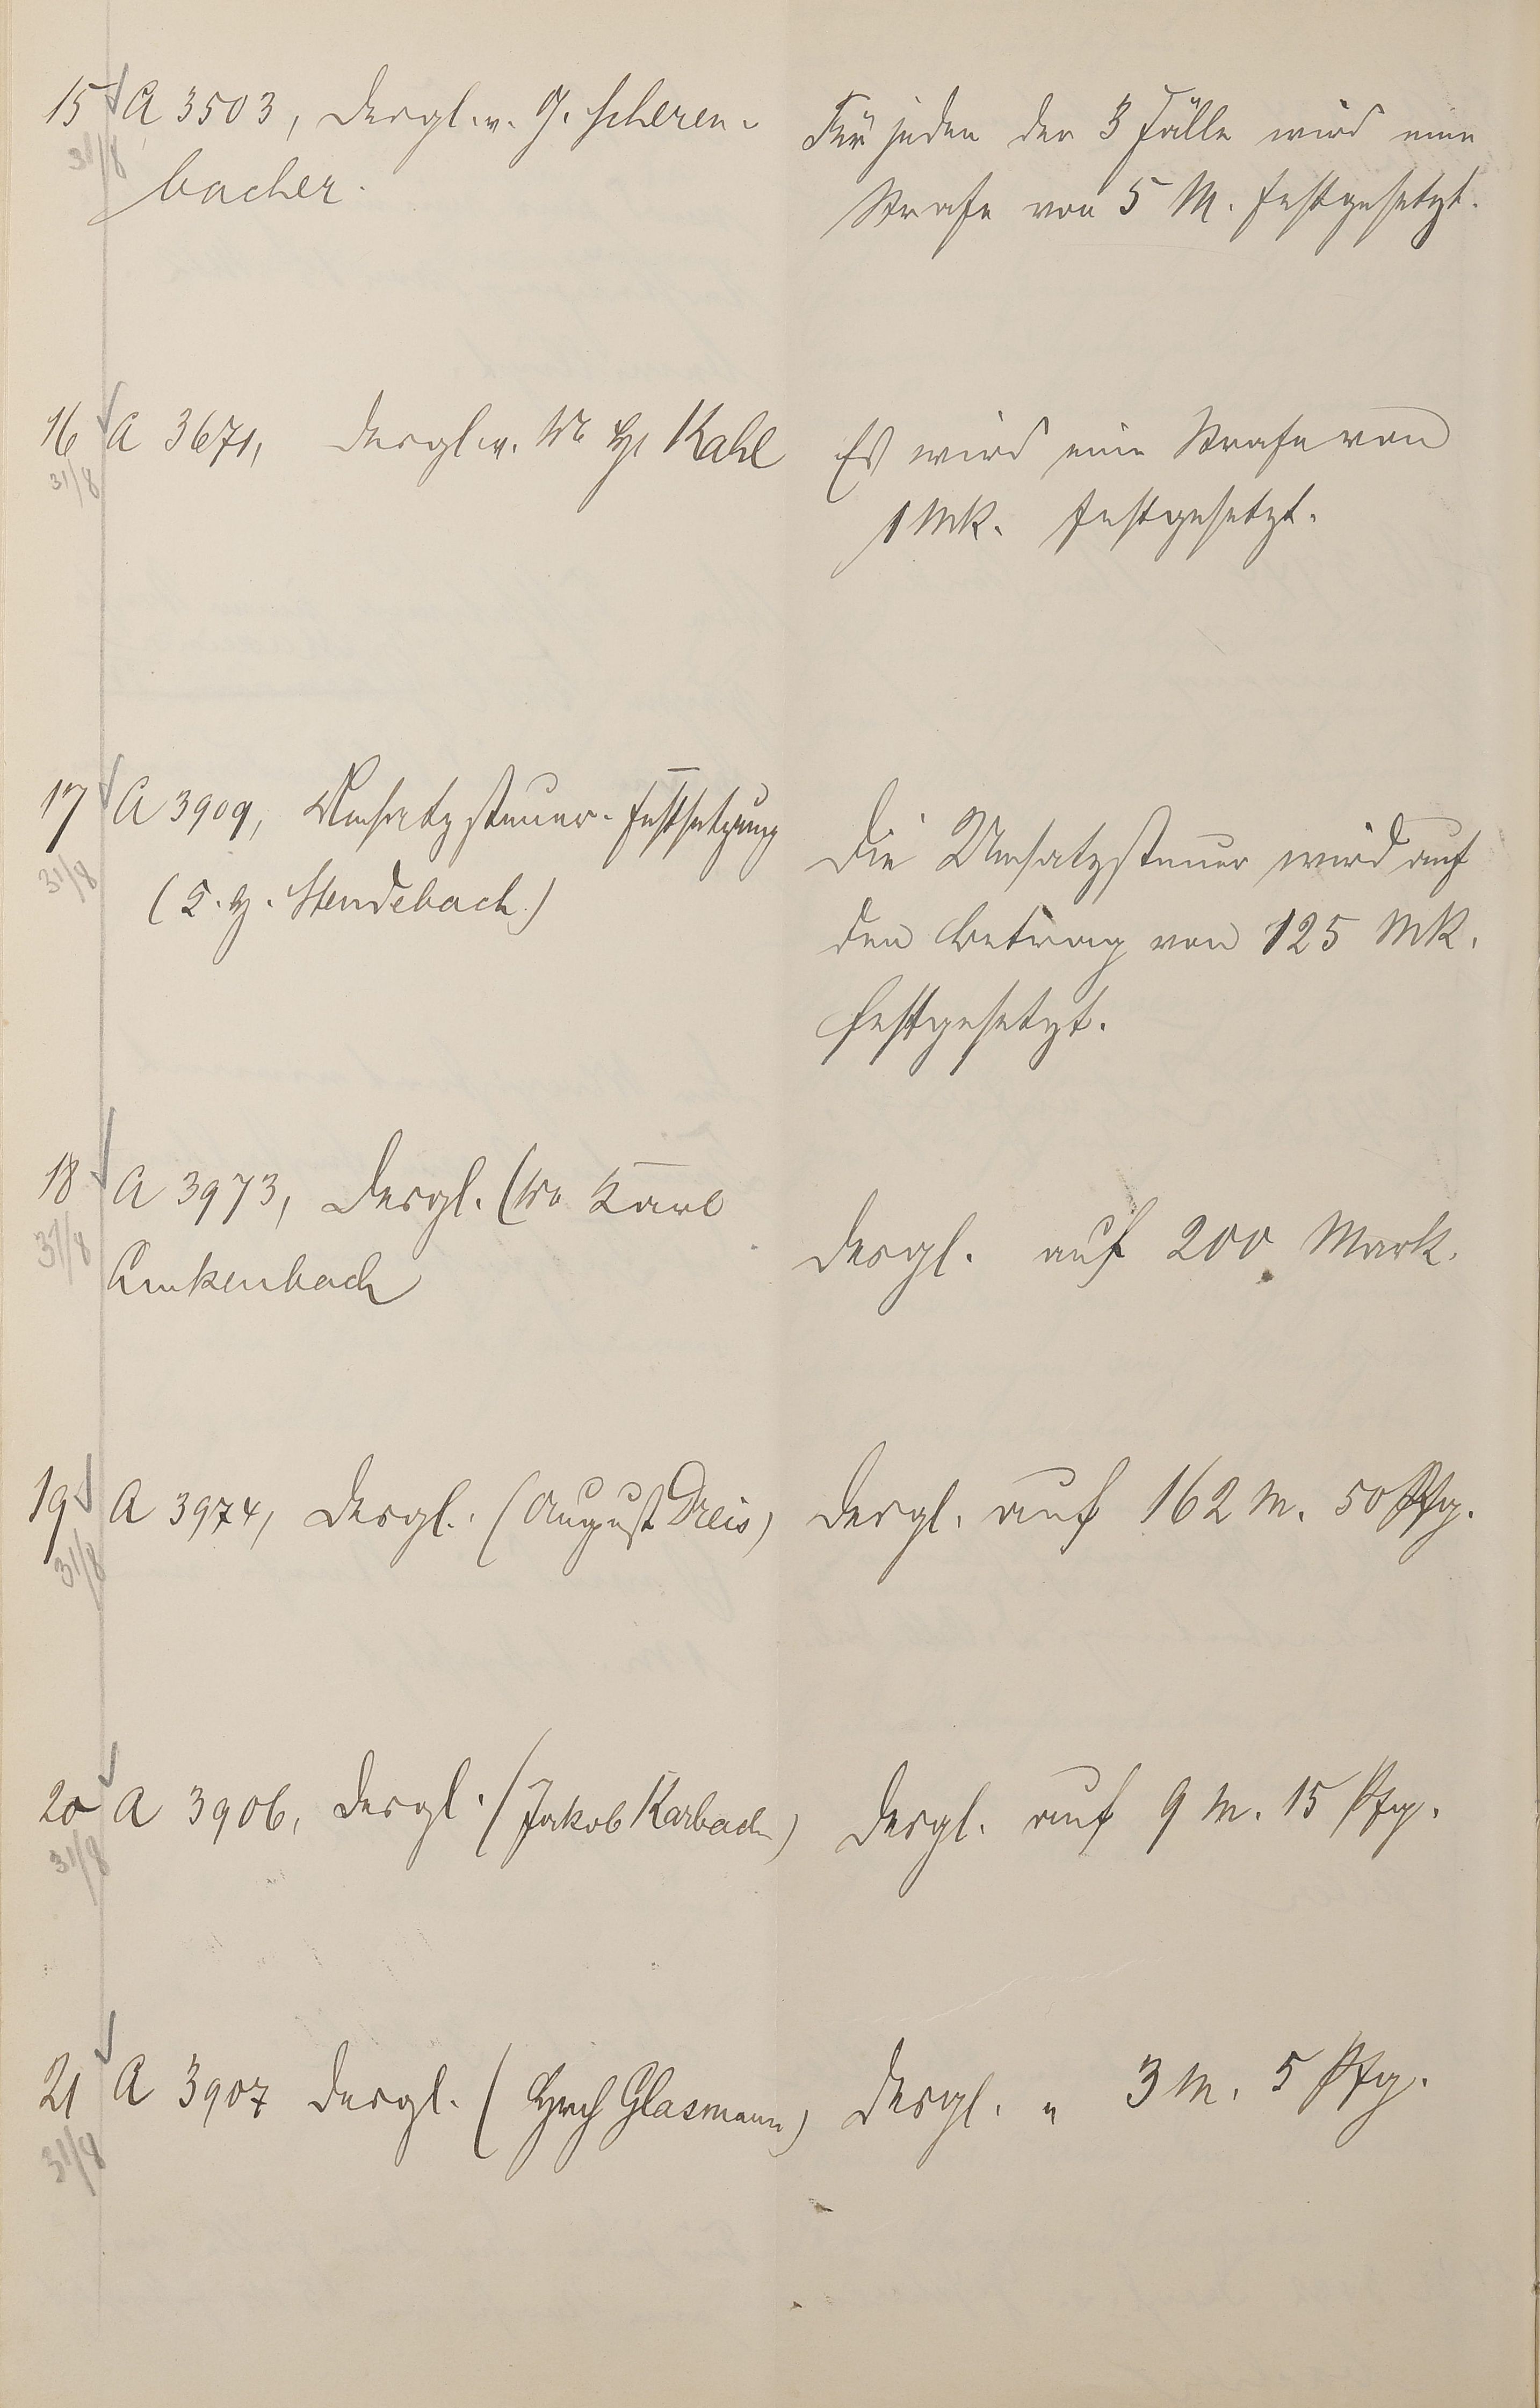 15 A 3503, Desgl. v. J. Scheren-
31/8 bacher.
Für jeden der 3 Fälle wird eine
Strafe von 5 M. festgesetzt.
16 A 3671, Desgl. v. Kahl
31/8
Es wird eine Strafe von
1 Mk. festgesetzt.
17 A 3909, Umsatzsteuer-Festsetzung
31/8 (Stendebach)
Die Umsatzsteuer wird auf
den Betrag von 125 Mk.
festgesetzt.
18 A 3973, Desgl. (Ww Karl
31/8 Linkenbach
Desgl. auf 200 Mark.
19 A 3974, Desgl. (August Dreis)
31/8
Desgl. auf 162 M. 50 Pfg.
20 A 3906, Desgl. (Jakob Karbach)
31/8
Desgl. auf 9 M. 15 Pfg.
21 A 3907 Desgl. (Hrch Glasmann)
31/8
Desgl. " 3 M. 5 Pfg.